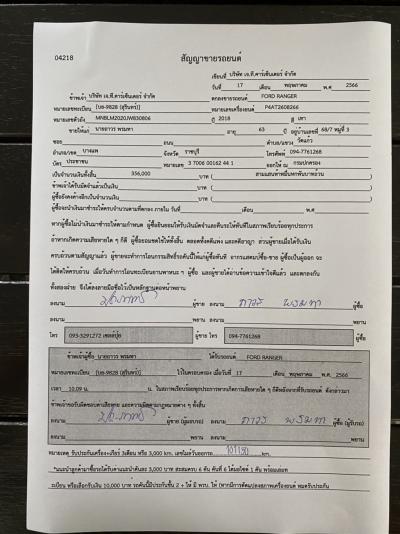 04218
สัญญาขายรถยนต์
เขียนที่ บริษัท เจ.ที.คาร์เซ็นเตอร์ จำกัด
วันที่ 17 เดือน พฤษภาคม พ.ศ 2566
ข้าพเจ้า บริษัท เจ.ที.คาร์เซ็นเตอร์ จำกัด ตกลงขายรถยนต์ FORD RANGER
หมายเลขทะเบียน [บธ-9828 (สุรินทร์)] หมายเลขเครื่องยนต์ P4AT2608266
หมายเลขตัวถัง MNBLM2020JW830806 ปี 2018 สี เทา
ขายให้แก่ นายถาวร พรมทา อายุ 63 ปี อยู่บ้านเลขที่ 68/7 หมู่ที่ 3
ซอย ถนน ตำบล/แขวง วัดแก้ว
อำเภอ/เขต บางแพ จังหวัด ราชบุรี โทรศัพท์ 094-7761268
บัตร ประชาชน หมายเลข 3 7006 00162 44 1 ออกให้ ณ กรมปกครอง
เป็นจำนวนเงินทั้งสิ้น 356,000 บาท ( สามแสนห้าหมื่นหกพันบาทถ้วน
ข้าพเจ้าได้รับมัดจำแล้วเป็นเงิน บาท (
ผู้ซื้อยังคงค้างอีกเป็นจำนวนเงิน บาท (
ผู้ซื้อจะนำเงินมาชำระให้ครบจำนวนตามที่ตกลง ภายใน วันที่ เดือน พ.ศ
หากผู้ซื้อไม่นำเงินมาชำระให้ตามกำหนด ผู้ซื้อยินยอมให้ริบเงินมัดจำและคืนรถให้ทันทีในสภาพเรียบร้อยทุกประการ
ถ้าหากเกิดความเสียหายใด ๆ ก็ดี ผู้ซื้อยอมชดใช้ให้ทั้งสิ้น ตลอดทั้งคดีแพ่ง และคดีอาญา ส่วนผู้ขายเมื่อได้รับเงิน
ครบถ้วนตามสัญญาแล้ว ผู้ขายจะทำการโอนกรรมสิทธิ์รถคันนี้ให้แก่ผู้ซื้อทันที ผู้ซื้อเป็นผู้ออก จะ
ทั้งสองฝ่าย จึงได้ลงลายมือชื่อไว้เป็นหลักฐานต่อหน้าพยาน
ลงนาม ผู้ขาย ลงนาม ถาวร พรมทา ผู้ซื้อ
ลงนาม พยาน ลงนาม พยาน
โทร 093-3291272 ผู้ขาย โทร 094-7761268 ผู้ซื้อ
ข้าพเจ้าผู้ซื้อ นายถาวร พรมทา ได้รับรถยนต์ FORD RANGER
หมายเลขทะเบียน [บธ-9828 (สุรินทร์)] ไว้ในครอบครอง เมื่อวันที่ 17 เดือน พฤษภาคม พ.ศ. 2566
เวลา 10.09 น. น. ในสภาพเรียบร้อยทุกประการหากเกิดการเสียหายใด ๆ
ข้าพเจ้าขอรับผิดชอบค่าเสียหาย และความผิดตามกฎหมายต่าง ๆ ทั้งสิ้น
ลงนาม ผู้ขาย (ผู้มอบรถ) ลงนาม ถาวร พรมทา ผู้ซื้อ (ผู้รับรถ)
ลงนาม พยาน ลงนาม พยาน
หมายเหตุ รับประกันเครื่อง+เกียร์ 3เดือน หรือ 3,000 km. เลขไมล์วันออกรถ km.
*แนะนำลูกค้ามาซื้อรถได้รับค่าแนะนำคันละ 3,000 บาท สะสมครบ 6 คัน คันที่ 6 ได้มอไซค์ 1 คัน